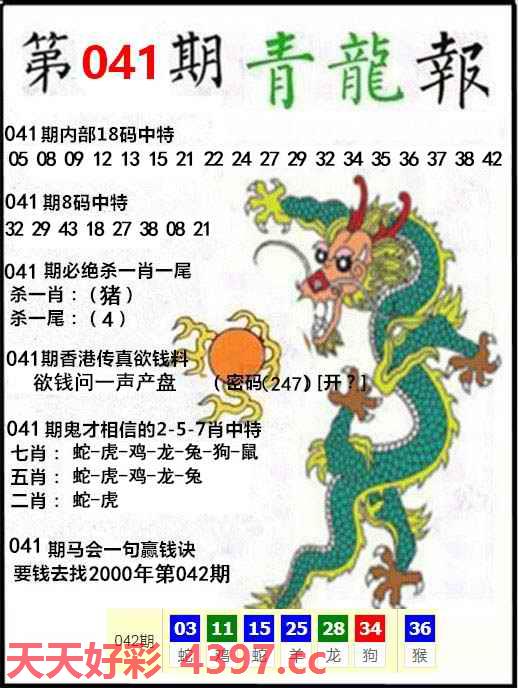 第041期青龍報
041期内部18码中特
05 08 09 12 13 15 21 22 24 27 29 32 34 35 36 37 38 42
041期8码中特
32 29 43 18 27 38 08 21
041期必绝杀一肖一尾
杀一肖：（猪）
杀一尾：（4）
041期香港传真欲钱料
欲钱问一声产盘 （密码(247)[开？]
041期鬼才相信的2-5-7肖中特
七肖：蛇-虎-鸡-龙-兔-狗-鼠
五肖：蛇-虎-鸡-龙-兔
二肖：蛇-虎
041期马会一句赢钱诀
要钱去找2000年第042期
042期 03 11 15 25 28 34 36
蛇 鸡 蛇 羊 龙 狗 猴
天天好彩 4397.cc